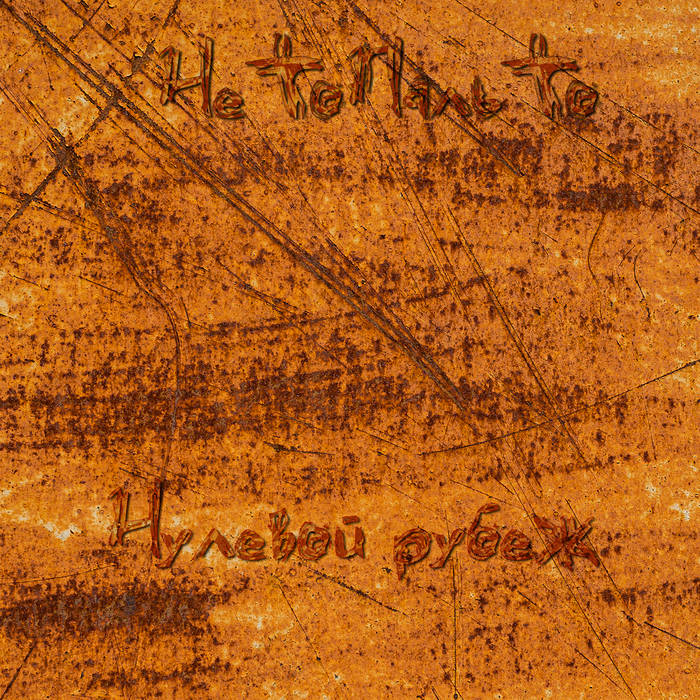 Не то Паль то
Нулевой рубеж